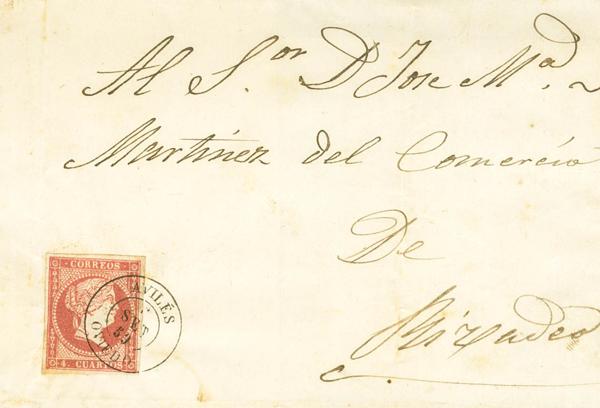 Al S.or D Jose M.a
Martinez del Comercio
De
Rivadeo
CORREOS
4 CUARTOS
AVILÉS
SET
59
OVIEDO